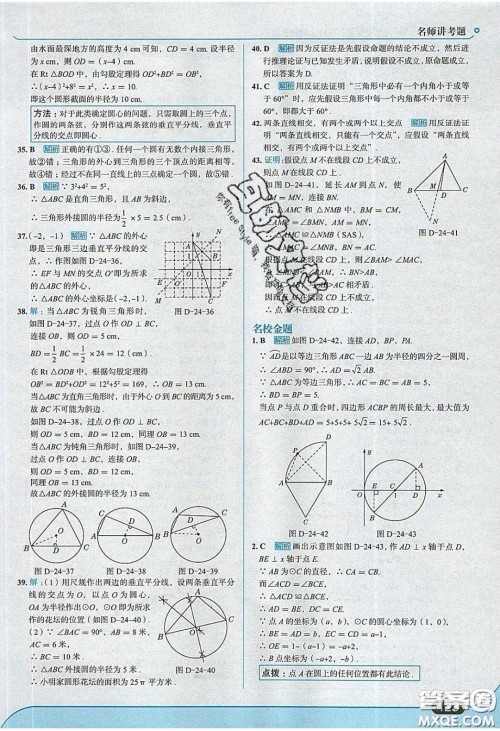 名师讲考题
由水面最深地方的高度为 4 cm 可知，CD = 4 cm. 设半径
为 x cm，则 OD = (x-4) cm.
在 Rt △BOD 中，由勾股定理得 OD²+BD² = OB²，
∴ (x-4)²+8² = x². ∴ x = 10.
即这个圆形截面的半径为 10 cm.
方法：对于此类确定圆心的问题，只需取圆上的三个点，
作圆的两条弦，分别作这两条弦的垂直平分线，垂直平
分线的交点即圆心.
35. B 解析 正确的有①③. 任何一个圆有无数个内接三角形，
故②错；三角形的外心到三角形的三个顶点的距离相等，
故④错；经过不在同一直线上的三点确定一个圆，故⑤错.
36. B 解析 ∵ 3²+4² = 5²，
∴ △ABC 是直角三角形，且 AB 为斜边，
∴ 三角形外接圆的半径为 1/2 × 5 = 2.5 (cm).
37. (-2, -1) 解析 ∵ △ABC 的外心
即是三角形三边垂直平分线的交
点，∴ 作图如图 D-24-36，
∴ EF 与 MN 的交点 O′即为所求
的△ABC 的外心，
∴ △ABC 的外心坐标是(-2, -1).
图 D-24-36
38. 解：当△ABC 为锐角三角形时，
如图 D-24-37，过点 O 作 OD ⊥ BC，
连接 OB，则 OD = 5 cm，
BD = 1/2 BC = 1/2 × 24 = 12 (cm).
在 Rt △OBD 中，根据勾股定理得
OB² = BD²+OD² = 12²+5² = 169，∴ OB = 13 cm.
当△ABC 为直角三角形时，由于外心 O 到 BC 的距离为 5 cm，
故 BC 不可能为斜边.
如图 D-24-38，过点 O 作 OD ⊥ BC，连接 OB，
则 OD = 5 cm，BD = 12 cm，同理 OB = 13 cm.
当△ABC 为钝角三角形时，如图 D-24-39，
过点 O 作 OD ⊥ BC，连接 OB，
则 OD = 5 cm，BD = 12 cm，
同理 OB = 13 cm.
故△ABC 的外接圆的半径为 13 cm.
图 D-24-37
图 D-24-38
图 D-24-39
39. 解：(1) 用尺规作出两边的垂直平分线，设两条垂直平分
线的交点为 O，以点 O 为圆心，
OA 为半径作出⊙O，⊙O 即为所求
作的花坛的位置(如图 D-24-40).
(2) ∵ ∠BAC = 90°，AB = 8 米，
AC = 6 米，
∴ BC = 10 米，
∴ △ABC 外接圆的半径为 5 米，
∴ 小明家圆形花坛的面积为 25π 平方米.
图 D-24-40
40. D 解析 因为反证法是先假设命题的结论不成立，然后进
行推理论证与已知发生矛盾，说明假设不成立，原命题成立，
所以答案为 D.
41. C 解析 用反证法证明“三角形中必有一个内角小于或等
于 60°”时，应先假设三角形中每一个内角都不小于或等
于 60°，即都大于 60°.
42. 两条直线相交，有两个或两个以上交点 解析 用反证法证
明“两条直线相交，只能有一个交点”，应假设“两条直线
相交，有两个或两个以上交点”.
43. 证明：假设点 M 不在线段 CD 上不成立，
则点 M 在线段 CD 上.
如图 D-24-41，延长 AM 到点 N，使
AM = MN，连接 BN.
在△AMC 和△NMB 中，BM = CM，
∠AMC = ∠BMN，AM = MN，
∴ △AMC ≌ △NMB (SAS)，
图 D-24-41
根据点 M 在线段 CD 上，则∠BAM > ∠MAC，
∴ ∠BAM > ∠N，∴ BN > AB，
即 AC > AB，与 AB > AC 相矛盾.
因此，点 M 在线段 CD 上是错误的.
所以点 M 不在线段 CD 上.
名校金题
1. B 解析 如图 D-24-42，连接 AD，BP，PA.
∵ AD是以等边三角形 ABC 一边 AB 为半径的四分之一圆周，
∴ ∠ABD = 90°，∴ AD = √2 AB.
∵ △ABC 为等边三角形，
∴ BD = BP = 5.
当点 P 与点 D 重合时，四边形 ACBP 的周长最大，最大值为
AC+BC+BD+AD = 5+5+5+5√2 = 15+ 5√2.
图 D-24-42
图 D-24-43
2. C 解析 画出示意图如图 D-24-43，作 AD ⊥ x 轴于点 D，
BE ⊥ x 轴于点 E.
∵ AB 为⊙C 的直径，∴ CA = CB.
而∠ACD = ∠BCE，
∴ △ACD ≌ △BCE，
∴ AD = BE，DC = CE.
∵ 点 A 的坐标为 (a, b)，⊙C 的圆心坐标为 (1, 0)，
∴ BE = AD = b，EC = CD = a-1，
∴ OE = 1-(a-1) = -a+2，
∴ B 点坐标为 (-a+2, -b).
点拨：点 A 在圆上的任何位置都有此结论.
答案圈
MXQE.COM